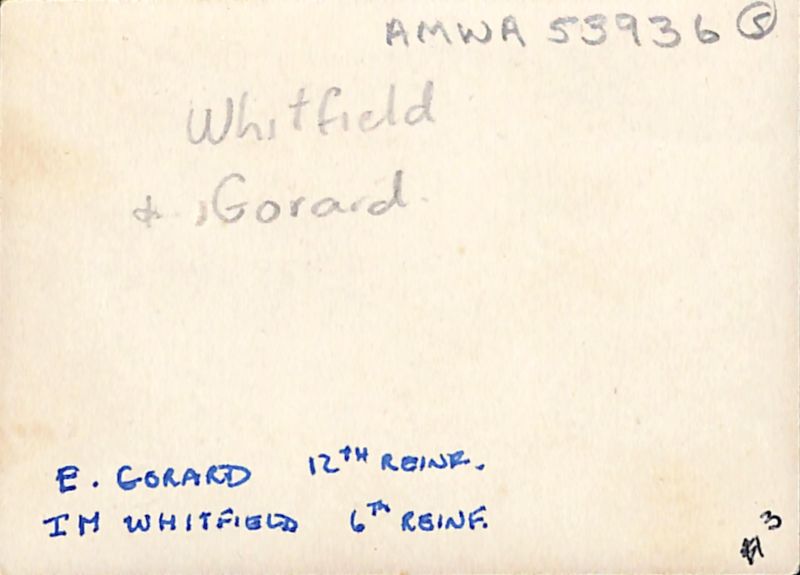 AMWA 53936 5
Whitfield
& Gorard.
E. GORARD 12TH REINF.
IM WHITFIELD 6TH REINF.
3